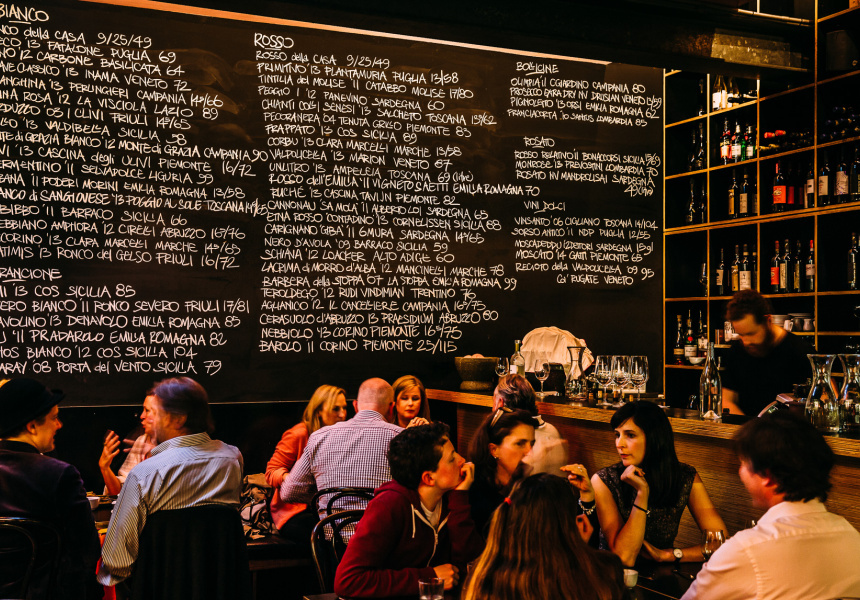 BIANCO
NCO della CASA 9/25/49
ECO '13 FATALONE PUGLIA 69
NO '12 CARBONE BASILICATA 64
AVE CLASSICO '13 INAMA VENETO 72
ANGHINA '13 PERLINGIERI CAMPANIA 14/66
NA ROSA '12 LA VISCIOLA LAZIO 89
DUZZO '13 I CLIVI FRIULI 14⁵/65
LLO '11 VALDIBELLA SICILIA 58
TE di GRAZIA BIANCO '12 MONTE di GRAZIA CAMPANIA 90
VI '13 CASCINA degli ULIVI PIEMONTE 16/72
ERMENTINO '11 SELVADOLCE LIGURIA 99
GNA '11 PODERI MORINI EMILIA ROMAGNA 13/58
ANCO di SANGIOVESE '13 POGGIO AL SOLE TOSCANA
BIBBO '11 BARRACO SICILIA 66
EBBIANO AMPHORA '12 CIRELLI ABRUZZO 16⁵/76
CORINO '13 CLARA MARCELLI MARCHE 14⁵/65
ATIMIS '13 RONCO del GELSO FRIULI 16/72
RANCIONE
MI '13 COS SICILIA 85
VERO BIANCO '11 RONCO SEVERO FRIULI 17/81
AVOLINO '13 DENAVOLO EMILIA ROMAGNA 85
U '11 PRADAROLO EMILIA ROMAGNA 82
HOS BIANCO '12 COS SICILIA 104
ARAY '08 PORTA del VENTO SICILIA 79
ROSSO
ROSSO della CASA 9/25/49
PRIMITIVO '13 PLANTAMURA PUGLIA 13/58
TINTILIA del MOLISE '11 CATABBO MOLISE 17/80
PEGGIO '12 PANEVINO SARDEGNA 60
CHIANTI COLLI SENESI '13 SALCHETO TOSCANA 13⁵/62
PECORANERA '04 TENUTA GRILLO PIEMONTE 83
FRAPPATO '13 COS SICILIA 89
CORBU '13 CLARA MARCELLI MARCHE 13/58
VALPOLICELLA '13 MARION VENETO 67
UNLITRO '13 AMPELEIA TOSCANA 69
ROCCO dell'EMILIA '11 VIGNETO SAETTI EMILIA ROMAGNA 70
RUCHÈ '13 CASCINA TAVIJN PIEMONTE 82
CANNONAU SA MOLA '11 ALBERTO LOI SARDEGNA 65
ETNA ROSSO CONTADINO '13 CORNELISSEN SICILIA 88
CARIGNANO GIBA '11 6MURA SARDEGNA 14⁵/65
NERO D'AVOLA '09 BARRACO SICILIA 59
SCHIAVA '12 LOACKER ALTO ADIGE 60
LACRIMA di MORRO D'ALBA '12 MANCINELLI MARCHE 78
BARBERA della STOPPA '07 LA STOPPA EMILIA ROMAGNA 99
TEROLDEGO '12 RUDI VINDIMIAN TRENTINO 76
AGLIANICO '12 IL CANCELLIERE CAMPANIA 16⁵/75
CERASUOLO d'ABRUZZO '13 PRAESIDIUM ABRUZZO 80
NEBBIOLO '13 CORINO PIEMONTE 16⁵/75
BAROLO '11 CORINO PIEMONTE 25/115
BOLLICINE
OLIMPIA '11 CGIARDINO CAMPANIA 80
PROSECCO GARA DRY NV DRUSIAN VENETO 13/59
PIGNOLETO '13 ORSI EMILIA ROMAGNA 62
FRANCIACORTA '10 LOMBARDIA 85
ROSATO
ROSSO RELATIVO '11 BONACCORSI SICILIA
MONROSE '13 PREVOSTINI LOMBARDIA 70
ROSATO NV MANDROLISAI SARDEGNA
VINI DOLCI
VINSANTO '06 CIGLIANO TOSCANA 14/104
SORSO ANTICO '11 NDP PUGLIA 12/55
MOSCADEDDU SARDEGNA
MOSCATO '14 GATTI PIEMONTE 65
RECIOTO della VALPOLICELLA '09 95
CA' RUGATE VENETO